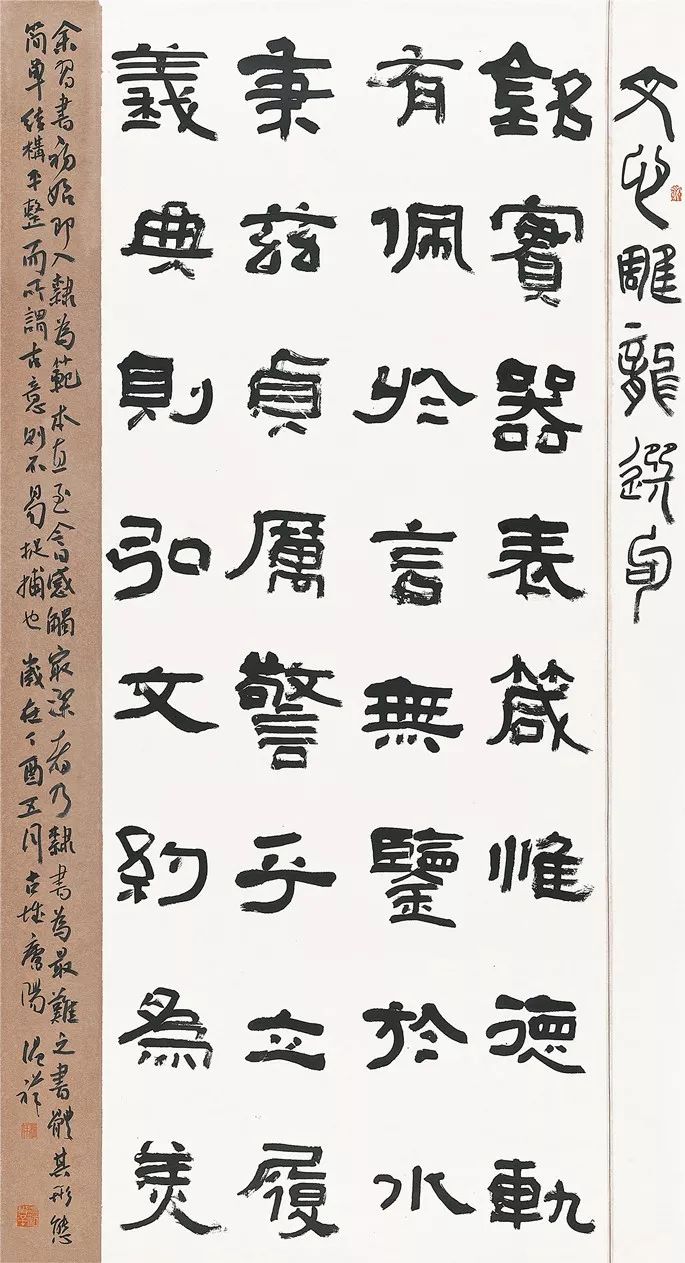 文心雕龍選句
銘實器表箴惟德軌
有佩於言無鑒於水
秉茲貞厲警乎立履
義典則弘文約為美
余習書初始即入隸為範本直至今感觸最深者乃隸書為最難之書體其形態
簡單結構平整而所謂古意則不易捉捕也歲在丁酉五月古城陽祥